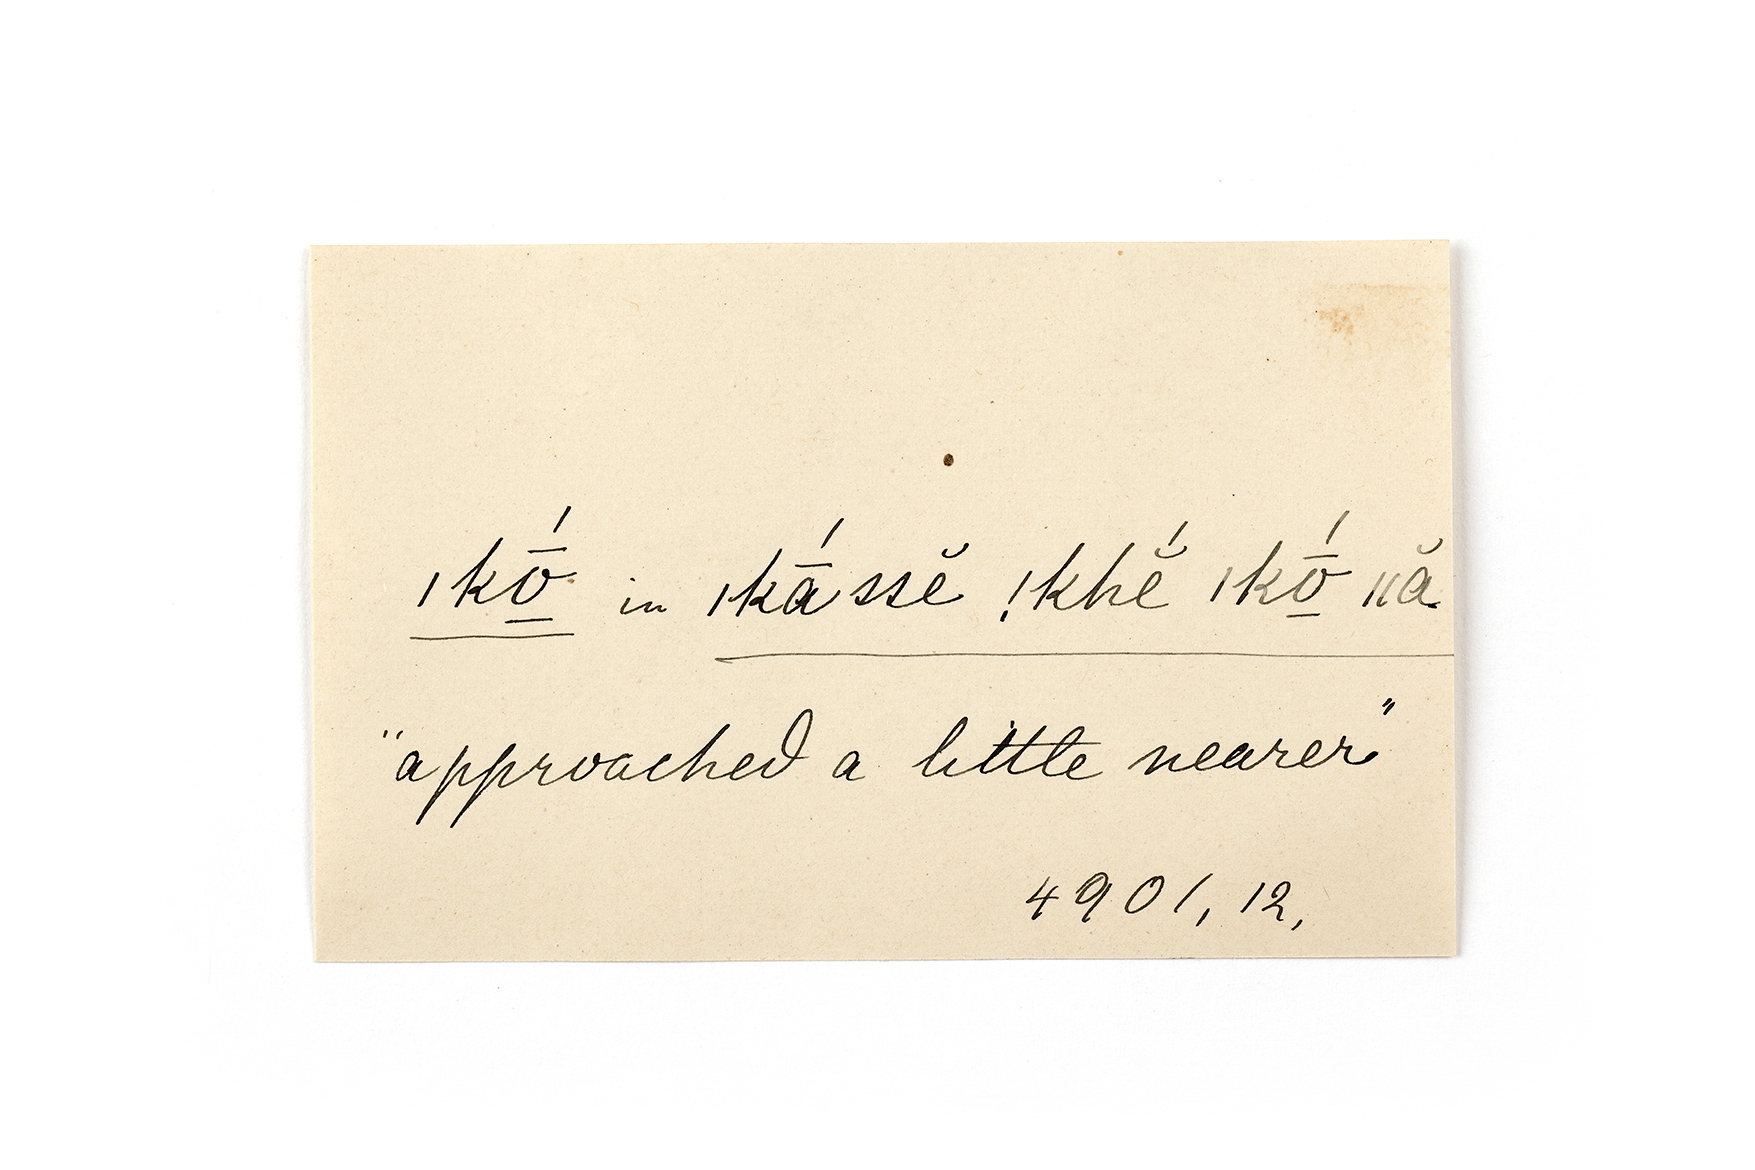 ǀkṓ̱ in ǀkā́ssĕ ǃkhĕ́ ǀkṓ̱ ǁă
"approached a little nearer"
4901, 12,